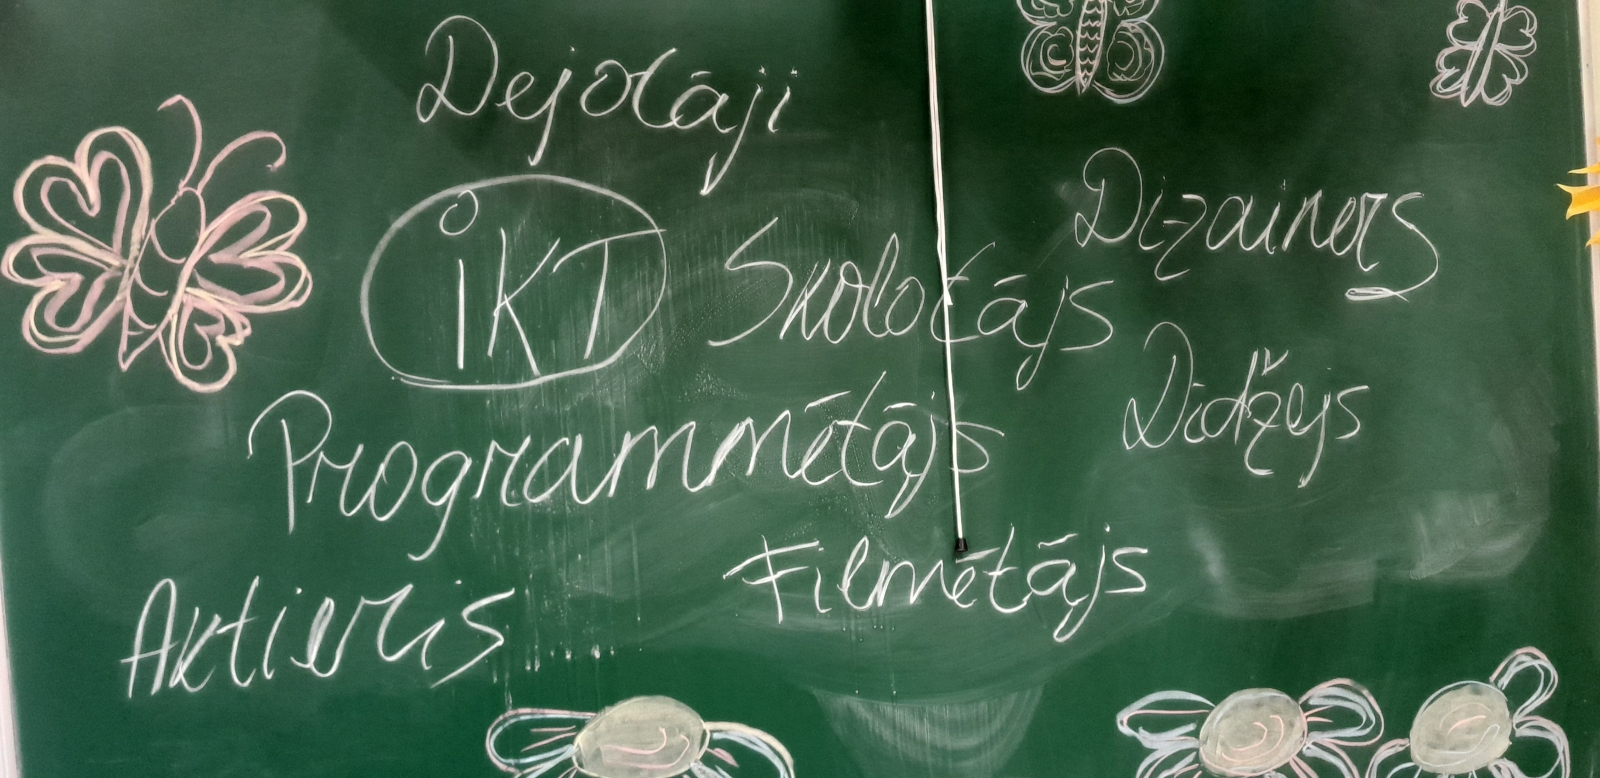 Dejotāji
Dizainers
iKT Skolotājs
Didžejs
Programmētājs
Filmētājs
Aktieris